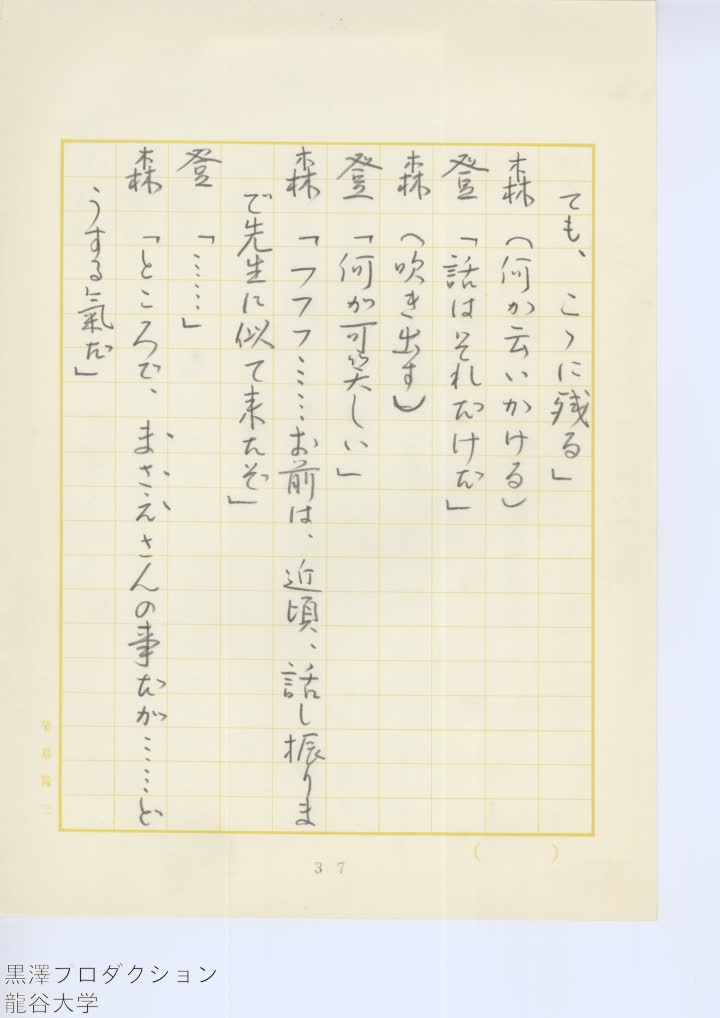 ても、こゝに残る」
森（何か云いかける）
登「話はそれだけだ」
森（吹き出す）
登「何が可笑しい」
森「フフフ……お前は、近頃、話し振りま
で先生に似て来たぞ」
登「……」
森「ところで、まさえさんの事だが……ど
うする氣だ」
37
（　　）
黒澤プロダクション
龍谷大学